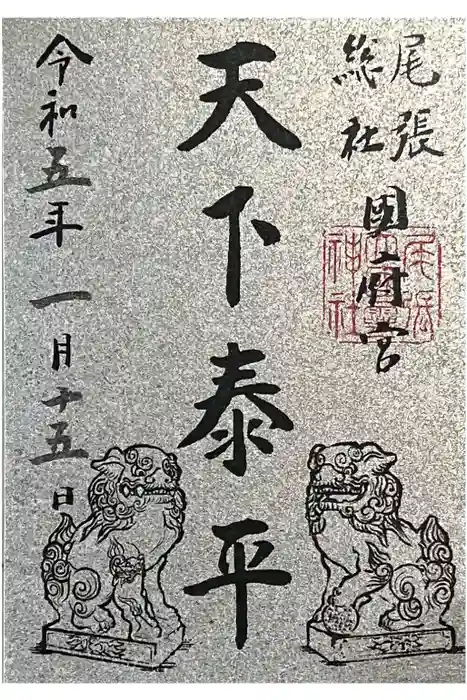 尾張
総社
國府宮
尾張
神社
天下泰平
令和五年一月十五日